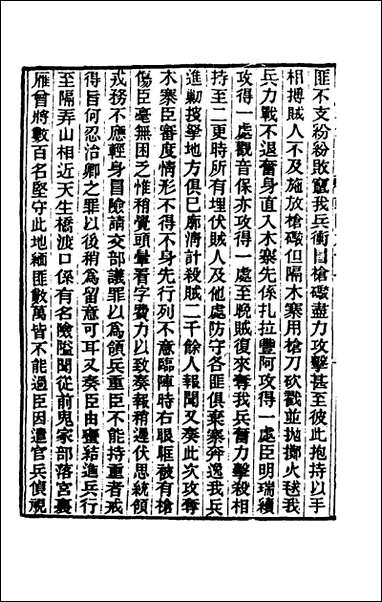 匪不支紛紛敗竄我兵衝冒槍礮盡力攻擊甚至彼此抱持以手
相搏賊人不及施放槍礮但隔木寨用槍刀砍戳並拋擲火毬我
兵力戰不退奮身直入木寨先係扎拉豐阿攻得一處臣明瑞續
攻得一處觀音保亦攻得一處至晚賊復來奪我兵奮力擊殺相
持至二更時所有埋伏賊人及他處防守各匪俱棄寨奔逸我兵
進勦投拏地方俱已廓清計殺賊二千餘人報聞又奏此次攻奪
木寨臣審度情形不得不身先行列不意臨陣時右眼眶被有槍
傷臣毫無困乏惟稍覺頭暈看字費力以致奏報稍遲伏思統領
戎務不應輕身冒險請交部議罪以為領兵重臣不能持重者戒
得旨何忍治卿之罪以後稍為留意可耳又奏臣由蠻結進兵行
至隔弄山相近天生橋渡口係有名險隘聞從前鬼家部落宮裏
雁曾將數百名堅守此地緬匪數萬皆不能過臣因遣官兵偵視